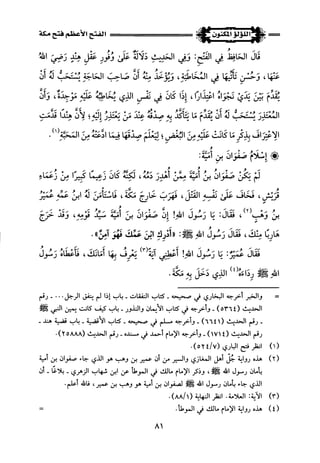 اللؤلؤ المكنون
الفتح الأعظم فتح مكة
قَالَ الحَافِظُ فِي الفَتْحِ: وَفِي الحَدِيثِ دَلَالَةٌ عَلَى وُفُورِ عَقْلِ هِنْدٍ رَضِيَ اللهُ
عَنْهَا، وَحُسْنِ تَأَتِّيهَا فِي المُخَاطَبَةِ، وَيُؤْخَذُ مِنْهُ أَنَّ صَاحِبَ الحَاجَةِ يُسْتَحَبُّ لَهُ أَنْ
يُقَدِّمَ بَيْنَ يَدَيْ نَجْوَاهُ اعْتِذَارًا، إِذَا كَانَ فِي نَفْسِ الذِي يُخَاطِبُهُ عَلَيْهِ مَوْجِدَةٌ، وَأَنَّ
المُعْتَذِرَ يُسْتَحَبُّ لَهُ أَنْ يُقَدِّمَ مَا يَتَأَكَّدُ بِهِ صِدْقُهُ عِنْدَ مَنْ يَعْتَذِرُ إِلَيْهِ؛ لِأَنَّ هِنْدًا قَدَّمَتِ
الِاعْتِرَافَ بِذِكْرِ مَا كَانَتْ عَلَيْهِ مِنَ البُغْضِ؛ لِيُعْلَمَ صِدْقُهَا فِيمَا ادَّعَتْهُ مِنَ المَحَبَّةِ(١).
إِسْلَامُ صَفْوَانَ بْنِ أُمَيَّةَ:
لَمْ يَكُنْ صَفْوَانُ بنُ أُمَيَّةَ مِمَّنْ أُهْدِرَ دَمُهُ، لَكِنَّهُ كَانَ زَعِيمًا كَبِيرًا مِنْ زُعَمَاءِ
قُرَيْشٍ، فَخَافَ عَلَى نَفْسِهِ القَتْلَ، فَهَرَبَ خَارِجَ مَكَّةَ، فَاسْتَأْمَنَ لَهُ ابنُ عَمِّهِ عُمَيْرُ
بنُ وَهْبٍ(٢)، فَقَالَ: يَا رَسُولَ اللهِ! إِنَّ صَفْوَانَ بنَ أُمَيَّةَ سَيِّدُ قَوْمِهِ، وَقَدْ خَرَجَ
هَارِبًا مِنْكَ، فَقَالَ رَسُولُ اللهِ ﷺ: «أَدْرِكِ ابْنَ عَمِّكَ فَهُوَ آمِنٌ».
فَقَالَ عُمَيْرٌ: يَا رَسُولَ اللهِ! أَعْطِنِي آيَةً(٣) يَعْرِفُ بِهَا أَمَانَكَ، فَأَعْطَاهُ رَسُولُ
اللهِ ﷺ رِدَاءَهُ(٤) الذِي دَخَلَ بِهِ مَكَّةَ.
= والخبر أخرجه البخاري في صحيحه ـ كتاب النفقات ـ باب إذا لم ينفق الرجل... ـ رقم
الحديث (٥٣٦٤) ـ وأخرجه في كتاب الأيمان والنذور ـ باب كيف كانت يمين النبي ﷺ
ـ رقم الحديث (٦٦٤١) ـ وأخرجه مسلم في صحيحه ـ كتاب الأقضية ـ باب قضية هند ـ
رقم الحديث (١٧١٤) ـ وأخرجه الإمام أحمد في مسنده ـ رقم الحديث (٢٥٨٨٨).
(١) انظر فتح الباري (٥٢٤/٧).
(٢) هذه رواية جُلِّ أهل المغازي والسير من أن عمير بن وهب هو الذي جاء صفوان بن أمية
بأمان رسول الله ﷺ، وذكر الإمام مالك في الموطأ عن ابن شهاب الزهري ـ بلاغًا ـ أن
الذي جاء بأمان رسول الله ﷺ لصفوان بن أمية هو وهب بن عمير، فالله أعلم.
(٣) الآية: العلامة. انظر النهاية (٨٨/١).
(٤) هذه رواية الإمام مالك في الموطأ.
=
٨١